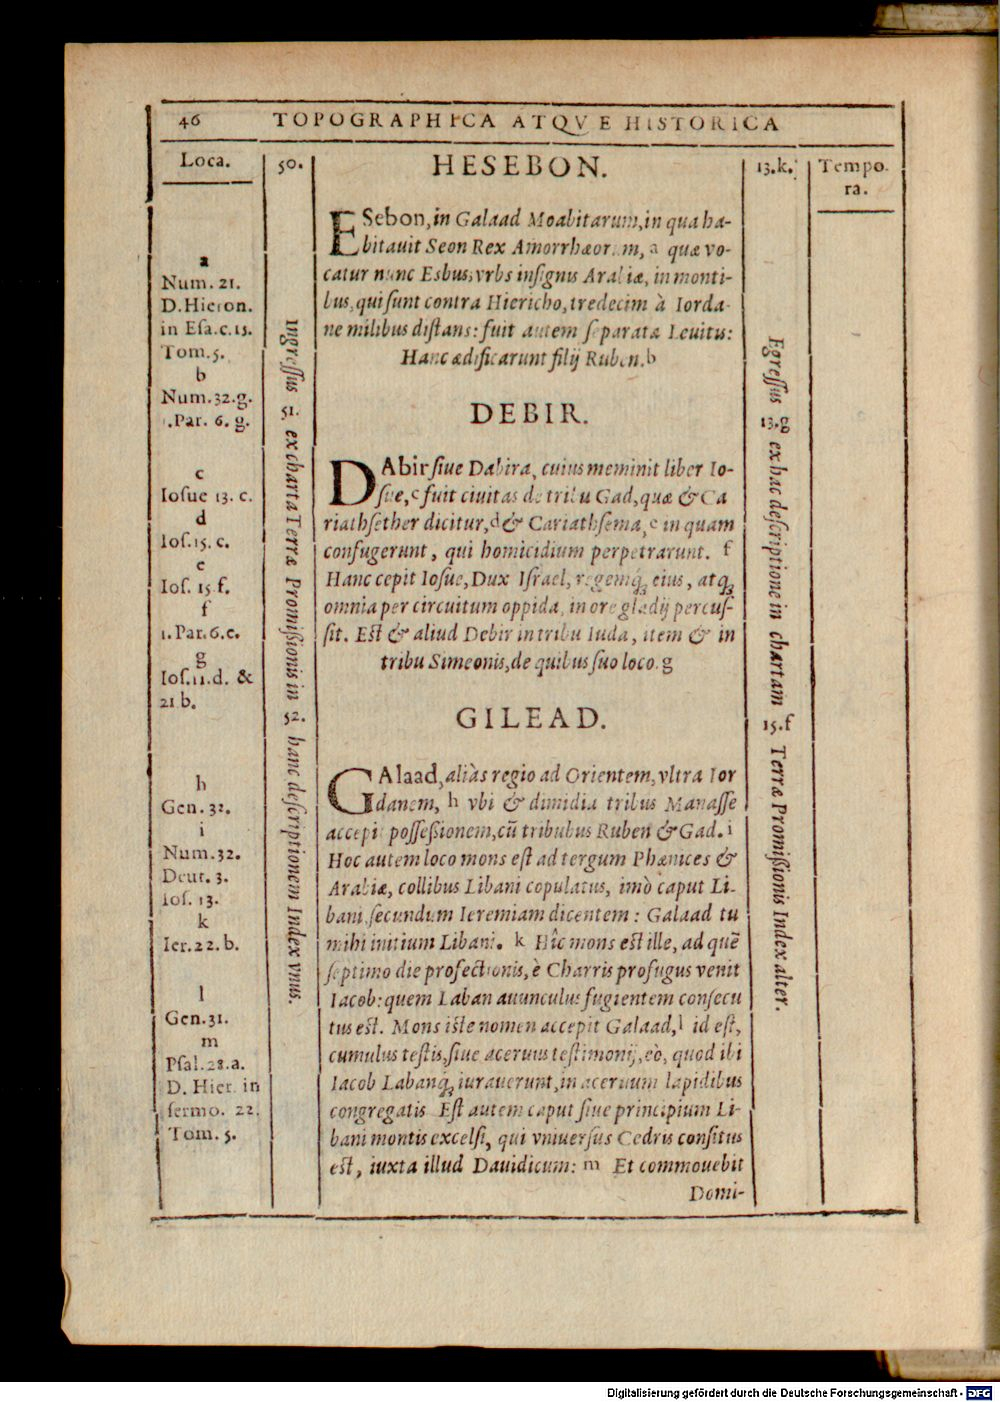 46 TOPOGRAPHICA ATQVE HISTORICA
Loca.
a
Num. 21.
D.Hieron.
in Esa.c.15.
Tom.5.
b
Num.32.g.
1.Par. 6. g.
c
Iosue 13. c.
d
Ios.15. c.
e
Ios. 15.f.
f
1.Par.6.c.
g
Ios.11.d. &
21.b.
h
Gen. 31.
i
Num.32.
Deut. 3.
Ios. 13.
k
Ier.22.b.
l
Gen.31.
m
Psal.28.a.
D. Hier. in
sermo. 22.
Tom. 5.
50.
Ingressus 51. ex charta Terræ Promißionis in 52. hanc descriptionem Index vnus.
HESEBON.
ESebon, in Galaad Moabitarum, in qua ha-
bitauit Seon Rex Amorrhæorum, a quæ vo-
catur nunc Esbus, vrbs insignis Arabiæ, in monti-
bus, qui sunt contra Hiericho, tredecim à Iorda-
ne milibus distans: fuit autem separata Leuitis:
Hanc ædificarunt filij Ruben. b
DEBIR.
DAbir siue Dabira, cuius meminit liber Io-
sue, c fuit ciuitas de tribu Gad, quæ & Ca
riathsether dicitur, d & Cariathsema, e in quam
confugerunt, qui homicidium perpetrarunt. f
Hanc cepit Iosue, Dux Israel, regemq́; eius, atq;
omnia per circuitum oppida, in ore gladij percus-
sit. Est & aliud Debir in tribu Iuda, item & in
tribu Simeonis, de quibus suo loco. g
GILEAD.
GAlaad, aliàs regio ad Orientem, vltra Ior
danem, h vbi & dimidia tribus Manasse
accepit posseßionem, cũ tribubus Ruben & Gad. i
Hoc autem loco mons est ad tergum Phœnices &
Arabiæ, collibus Libani copulatus, imò caput Li-
bani, secundum Ieremiam dicentem: Galaad tu
mihi initium Libani. k Hîc mons est ille, ad quẽ
septimo die profectionis, è Charris profugus venit
Iacob: quem Laban auunculus fugientem consecu
tus est. Mons iste nomen accepit Galaad, l id est,
cumulus testis, siue aceruus testimonij, eò, quod ibi
Iacob Labanq́; iurauerunt, in aceruum lapidibus
congregatis Est autem caput siue principium Li-
bani montis excelsi, qui vniuersus Cedris consitus
est, iuxta illud Dauidicum: m Et commouebit
Domi-
13.k.
Egressus 13.g ex hac descriptione in chartam 15.f Terræ Promißionis Index alter.
Tempo-
ra.
Digitalisierung gefördert durch die Deutsche Forschungsgemeinschaft - DFG